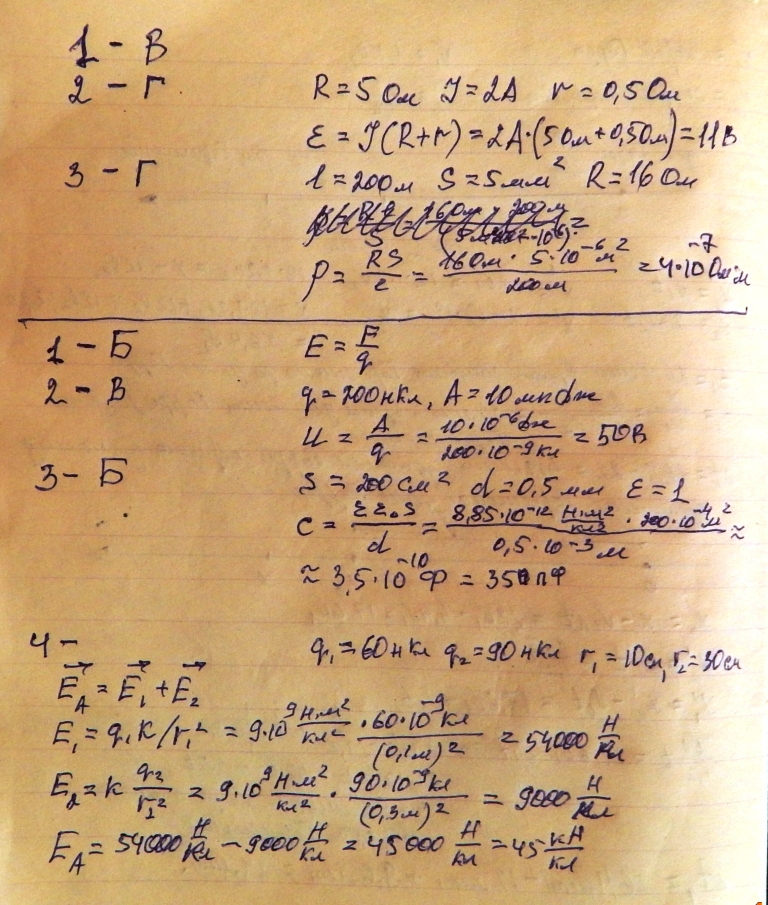 1 - В
2 - Г R = 5 Ом J = 2А r = 0,5 Ом
ε = J(R+r) = 2А·(5Ом+0,5Ом) = 11В
3 - Г l = 200м S = 5мм² R = 16 Ом
ρ = RS/l = 16Ом · 5·10⁻⁶м² / 200м = 4·10⁻⁷ Ом·м
1 - Б E = F/q
2 - В q = 200нкл, A = 10мкдж
U = A/q = 10·10⁻⁶дж / 200·10⁻⁹кл = 50В
3 - Б S = 200см² d = 0,5 мм ε = 1
C = εε₀S/d = 8,85·10⁻¹² Н·м²/кл² · 200·10⁻⁴м² / 0,5·10⁻³м ≈
≈ 3,5·10⁻¹⁰Ф = 350пФ
4 - q₁ = 60нкл q₂ = 90нкл r₁ = 10см, r₂ = 30см
E⃗_A = E⃗₁ + E⃗₂
E₁ = q₁k/r₁² = 9·10⁹ Н·м²/кл² · 60·10⁻⁹кл / (0,1м)² = 54000 Н/кл
E₂ = k q₂/r₂² = 9·10⁹ Н·м²/кл² · 90·10⁻⁹кл / (0,3м)² = 9000 Н/кл
E_A = 54000 Н/кл - 9000 Н/кл = 45000 Н/кл = 45 кН/кл